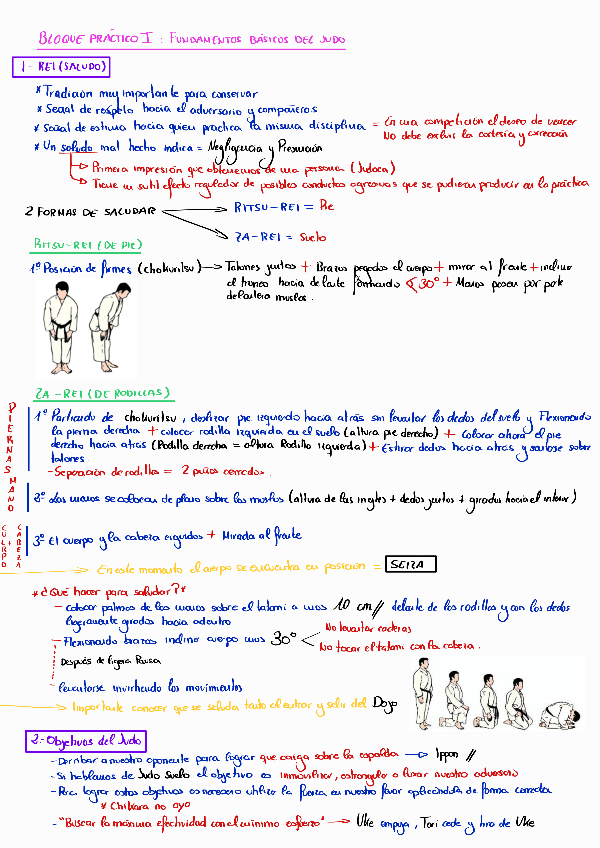 BLOQUE PRÁCTICO I : FUNDAMENTOS BÁSICOS DEL JUDO
1- REI (SALUDO)
* Tradición muy importante para conservar
* Señal de respeto hacia el adversario y compañeros
* Señal de estima hacia quien practica la misma disciplina = En una competición el deseo de vencer
No debe excluir la cortesía y corrección
* Un saludo mal hecho indica = Negligencia y Presunción
Primera impresión que obtenemos de una persona (Judoca)
Tiene un sutil efecto regulador de posibles conductas agresivas que se pudieran producir en la práctica
2 FORMAS DE SALUDAR
RITSU-REI = Pie
ZA-REI = Suelo
RITSU-REI (DE PIE)
1º Posición de firmes (chokuritsu) Talones juntos + Brazos pegados al cuerpo + mirar al frente + inclino
el tronco hacia delante formando 30° + Manos pasan por parte
delantera muslos.
ZA-REI (DE RODILLAS)
PIERNAS
1º Partiendo de chokuritsu, deslizar pie izquierdo hacia atrás sin levantar los dedos del suelo y Flexionando
la pierna derecha + colocar rodilla izquierda en el suelo (altura pie derecho) + Colocar ahora el pie
derecho hacia atrás (Rodilla derecha = altura Rodilla izquierda) + Estirar dedos hacia atrás y sentarse sobre
talones.
- Separación de rodillas = 2 puños cerrados.
MANO
2º Las manos se colocan de plano sobre los muslos (altura de las ingles + dedos juntos + girados hacia el interior)
CUERPO + CABEZA
3º El cuerpo y la cabeza erguidos + Mirada al frente
En este momento el cuerpo se encuentra en posición = SEIZA
*¿Qué hacer para saludar?*
- Colocar palmas de las manos sobre el tatami a unos 10 cm// delante de las rodillas y con los dedos
ligeramente girados hacia adentro
- Flexionando brazos inclino cuerpo unos 30°
No levantar caderas
No tocar el tatami con la cabeza.
Después de ligera Pausa
- levantarse invirtiendo los movimientos
Importante conocer que se saluda tanto al entrar y salir del Dojo
2.- Objetivos del Judo
- Derribar a nuestro oponente para lograr que caiga sobre la espalda Ippon //
- Si hablamos de Judo Suelo el objetivo es inmovilizar, estrangular o luxar nuestro adversario
- Para lograr estos objetivos es necesario utilizar la fuerza en nuestro favor aplicándola de forma correcta
* Chikara no oyo
- "Buscar la máxima efectividad con el mínimo esfuerzo" Uke empuja, Tori cede y tira de Uke